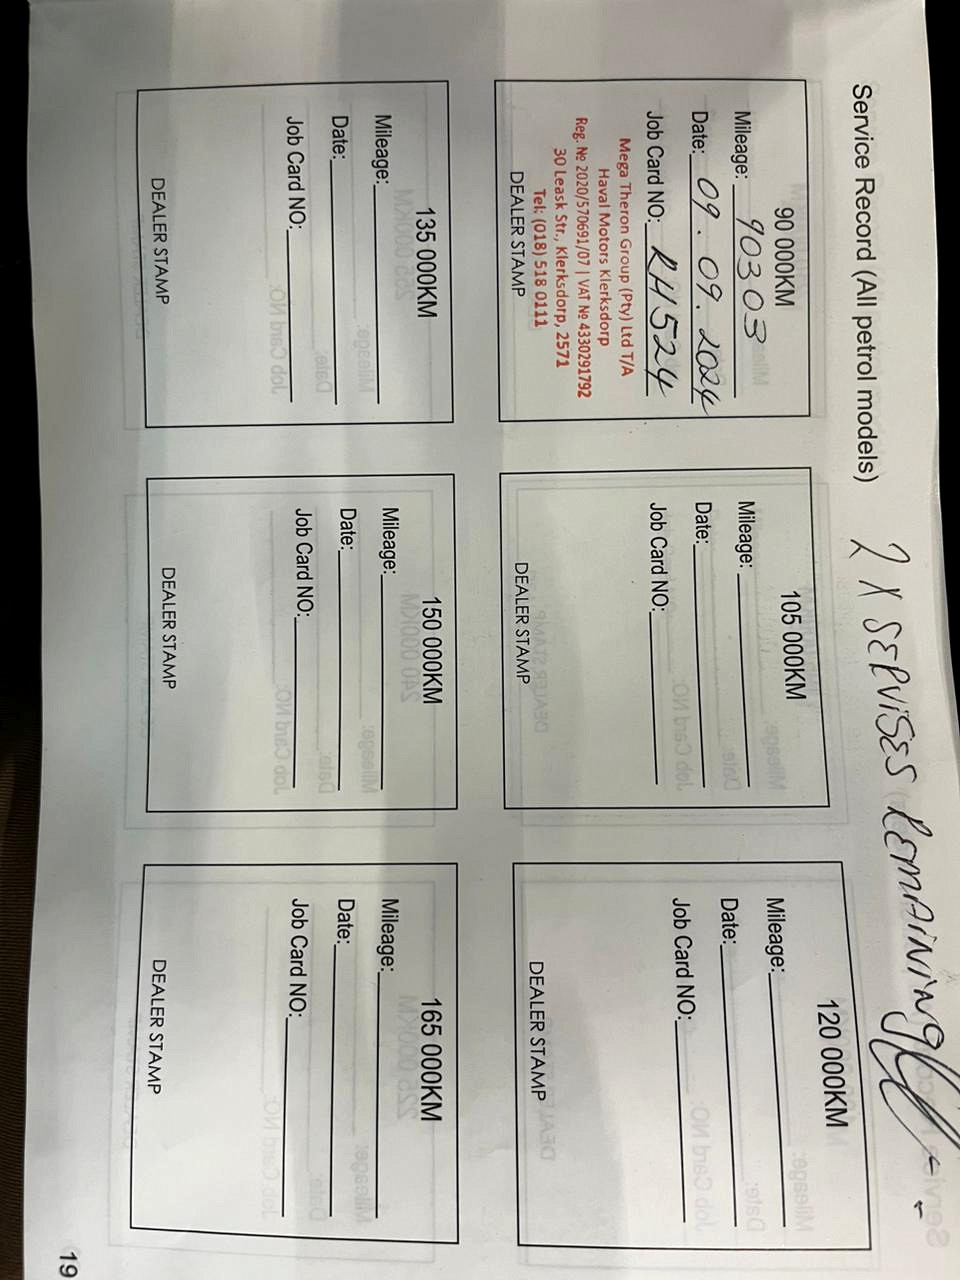 Service Record (All petrol models)
2 X SERViSES REMAINING
90 000KM
Mileage: 90303
Date: 09.09.2024
Job Card NO: RH524
Mega Theron Group (Pty) Ltd T/A
Haval Motors Klerksdorp
Reg. № 2020/570691/07 | VAT № 4330291792
30 Leask Str., Klerksdorp, 2571
Tel: (018) 518 0111
DEALER STAMP
105 000KM
Mileage:
Date:
Job Card NO:
DEALER STAMP
120 000KM
Mileage:
Date:
Job Card NO:
DEALER STAMP
135 000KM
Mileage:
Date:
Job Card NO:
DEALER STAMP
150 000KM
Mileage:
Date:
Job Card NO:
DEALER STAMP
165 000KM
Mileage:
Date:
Job Card NO:
DEALER STAMP
19